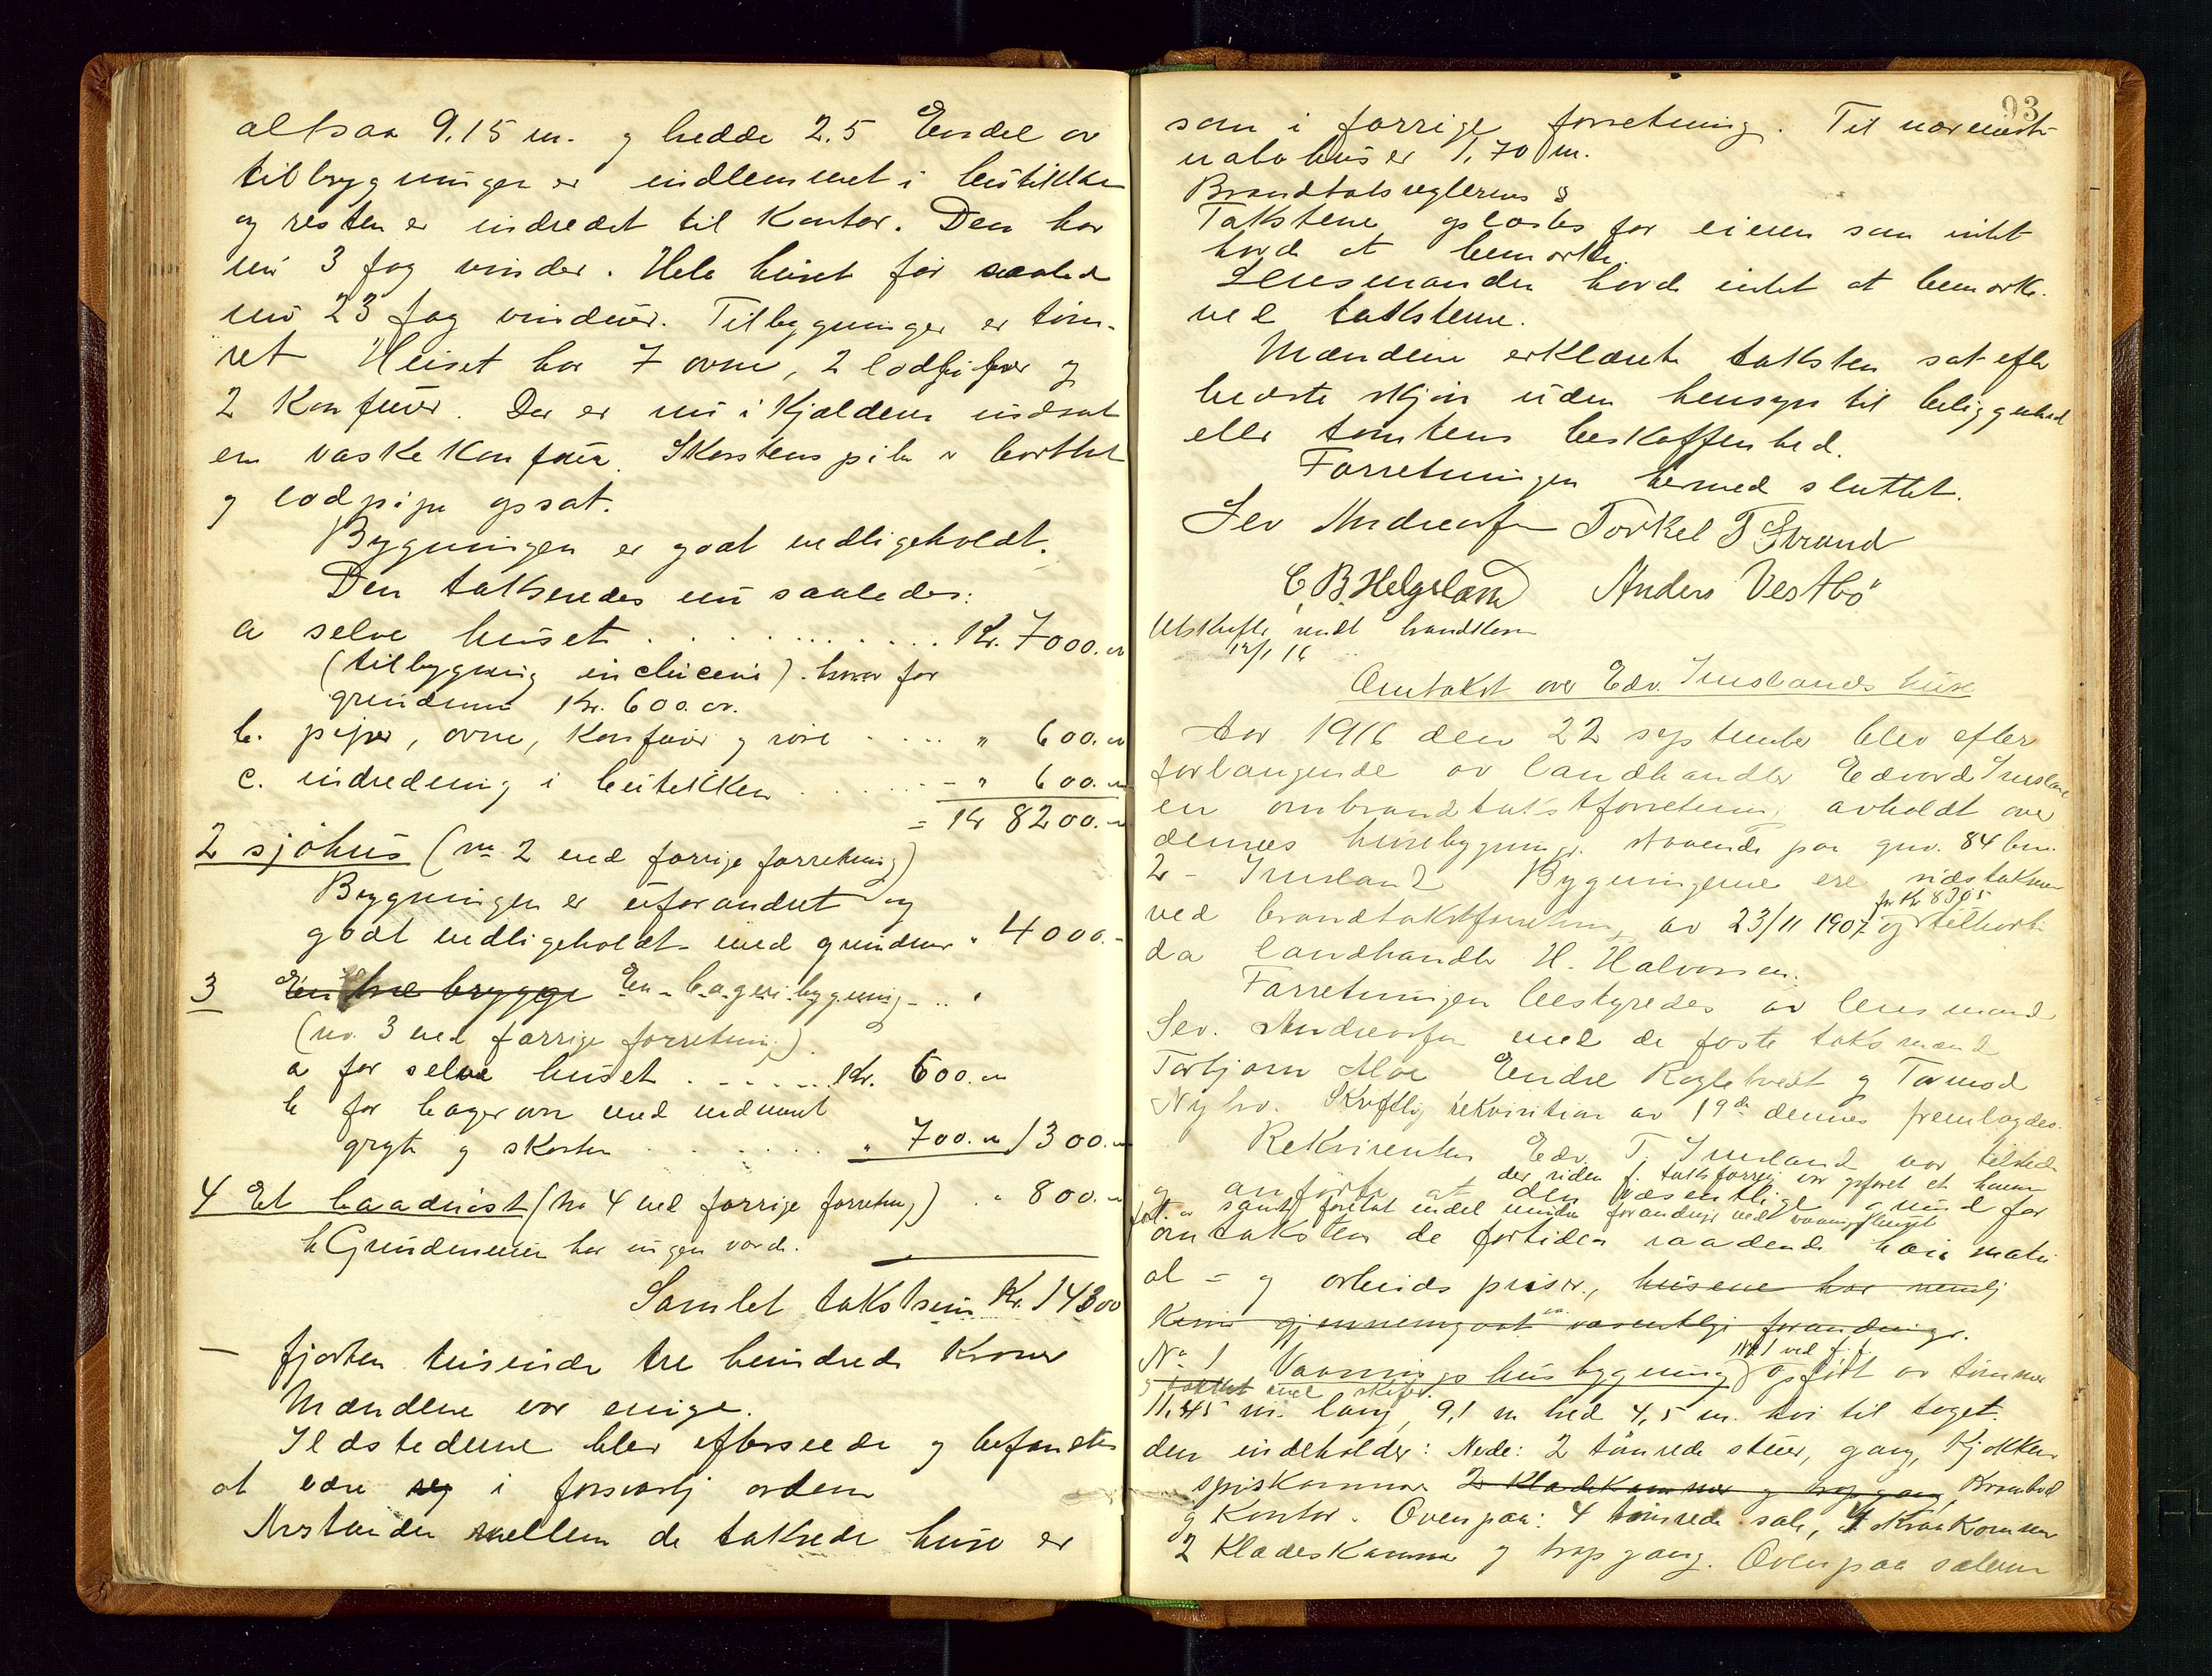 altsaa 9.15 m. og bredde 2.5 Endel av
tilbygningen er indlemmet i butikken
og resten er indredet til Kontor. Den har
nu 3 fag vinder. Hele huset får saaled
nu 23 fag vinduer. Tilbygninger er tøm-
ret Huset har 7 ovne, 2 lodpiper og
2 Konfuur. Der er nu i Kjælderen indsat
en vaskekonfuur. Skorstenspibe er borttat
og lodpipe opsat.
Bygningen er godt vedligeholdt.
Den takseredes nu saaledes:
a selve huset . . . . . Kr. 7000.00
(tilbygning inclusive). hvorav for
grundmur Kr. 600.00.
b. piper, ovne, Konfuur og rør . . . " 600.00
c. indredning i butikken . . . . - " 600.00
= Kr 8200.00
2 sjøhus (No 2 ved forrige forretning)
Bygningen er uforandret og
godt vedligeholdt med grundmur " 4000.-
3 En brygge En bageribygning . . "
(no. 3 ved forrige forretning).
a for selve huset . . . . . Kr. 600.00
b for bagerovn med indmuret
gryte og skorsten . . . . . " 700.00 1300.00
4 Et baadnøst (No 4 ved forrige forretning) . " 800.00
b Grundmuren har ingen værdi.
Samlet takstsum Kr. 14300
— fjorten tusinde tre hundrede Kroner
Mændene var enige.
Ildstederne blev efterseede og befandtes
at være i forsvarlig orden
Avstanden mellem de takserede huse er
93
som i forrige forretning. Til nærmeste
nabohus er 1,70 m.
Brandtaksreglerens §
Takstene oplæstes for eieren som intet
havde at bemerke.
Lensmanden havde intet at bemerke
ved taksterne.
Mændene erklærte taksten sat efter
bedste skjøn uden hensyn til beliggenhed
eller tomtens beskaffenhed.
Forretningen hermed sluttet.
Sev Andreassen Torkel T Strand
C. B. Helgeland Anders Vestbø
Utskrifter sendt brandkassen
12/1 16
Omtakst over Edv. Imslands huse
Aar 1916 den 22 september blev efter
forlangende av landhandler Edvard Imsland
en ombrandtakstforretning avholdt over
dennes husebygninger staaende paa gnr. 84 bnr.
2 - Imsland Bygningerne ere sidst taksert
for Kr 8305
ved brandtakstforretning av 23/11 1907 og tilhørte
da landhandler H. Halvorsen.
Forretningen bestyredes av lensmand
Sev. Andreassen med de faste taksmænd
Torbjørn Moe Endre Roglebreit og Tormod
Nybø. Skriftlig rekvisition av 19de dennes fremlagdes.
Rekvirenten Edv. T. Imsland var tilstede
der siden f. takstforretn. var opført et
og anførte at den væsentlige grund for
samt foretat endel mindre forandringer ved vaaningshuset
omtaksten de fortiden raadende høie mate
al = og arbeids priser., husene har nemlig
gjennemgaat væsentlige forandringer.
No 1 ved f. f.
No 1 Vaaningshusbygning) opført av tømmer
og tækket med skifer.
11,45 m. lang, 9,1 m bred 4,5 m. høi til taget.
den indeholder: Nede: 2 tømrede stuer, gang, Kjøkken
spiskammer 2 Klædekammer og trapgang, Krambod
og Kontor. Ovenpaa: 4 tømrede sale, 4 Kraakammer
2 Klædeskammer og trapgang. Ovenpaa salene